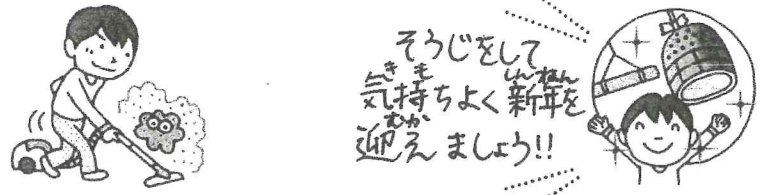 そうじをして
気持ちよく新年を
迎えましょう!!